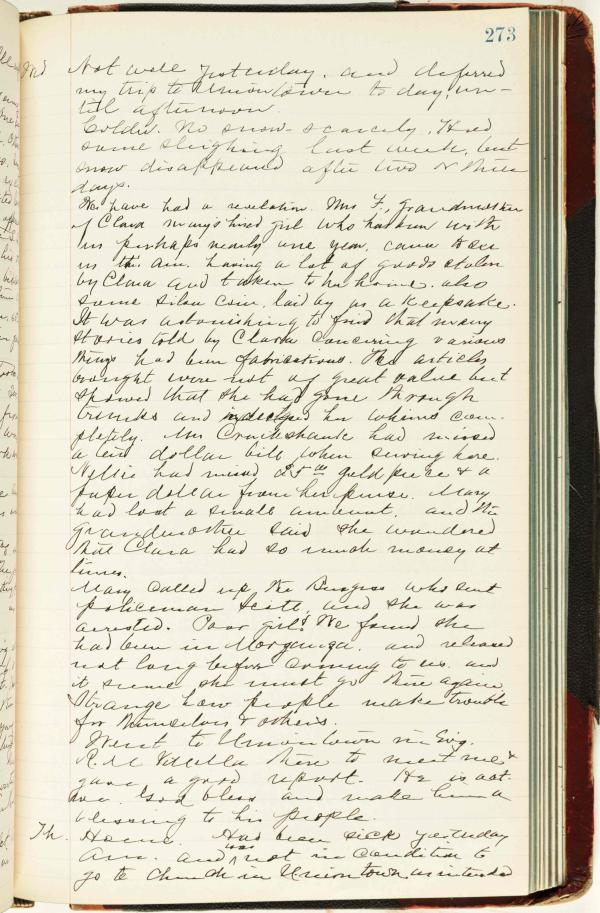 273
Wed Not well yesterday, and deferred
my trip to Uniontown to day, un-
til afternoon.
Colder. No snow - scarcely. Had
some sleighing last week, but
snow disappeared after two or three
days.
We have had a revelation. Mrs F., grandmother
of Clara Mary's hired girl who has been with
us perhaps nearly one year, came to see
us this am. having a lot of goods stolen
by Clara and taken to her home. also
some silver coin, laid by as a keepsake.
It was astonishing to find that many
stories told by Clara concerning various
things had been fabrications. The articles
brought were not of great value but
showed that she had gone through
trunks and indulged her whims com-
pletely. Mrs Cruikshank had missed
a ten dollar bill when sewing here.
Nellie had missed a $5 00 gold piece & a
paper dollar from her purse. Mary
had lost a small amount, and the
Grandmother said she wondered
that Clara had so much money at
times.
Mary called up the Burgess who sent
policeman Scott, and she was
arrested. Poor girl! We found she
had been in Morganza, and released
not long before coming to us. and
it seems she must go there again
Strange how people make trouble
for themselves & others.
Went to Uniontown in Evg.
R. M. there to meet me &
gave a good report. He is act-
ive. God bless and make him a
blessing to his people.
Th. Home. Had been sick yesterday
am. and was not in condition to
go to church in Uniontown as intended